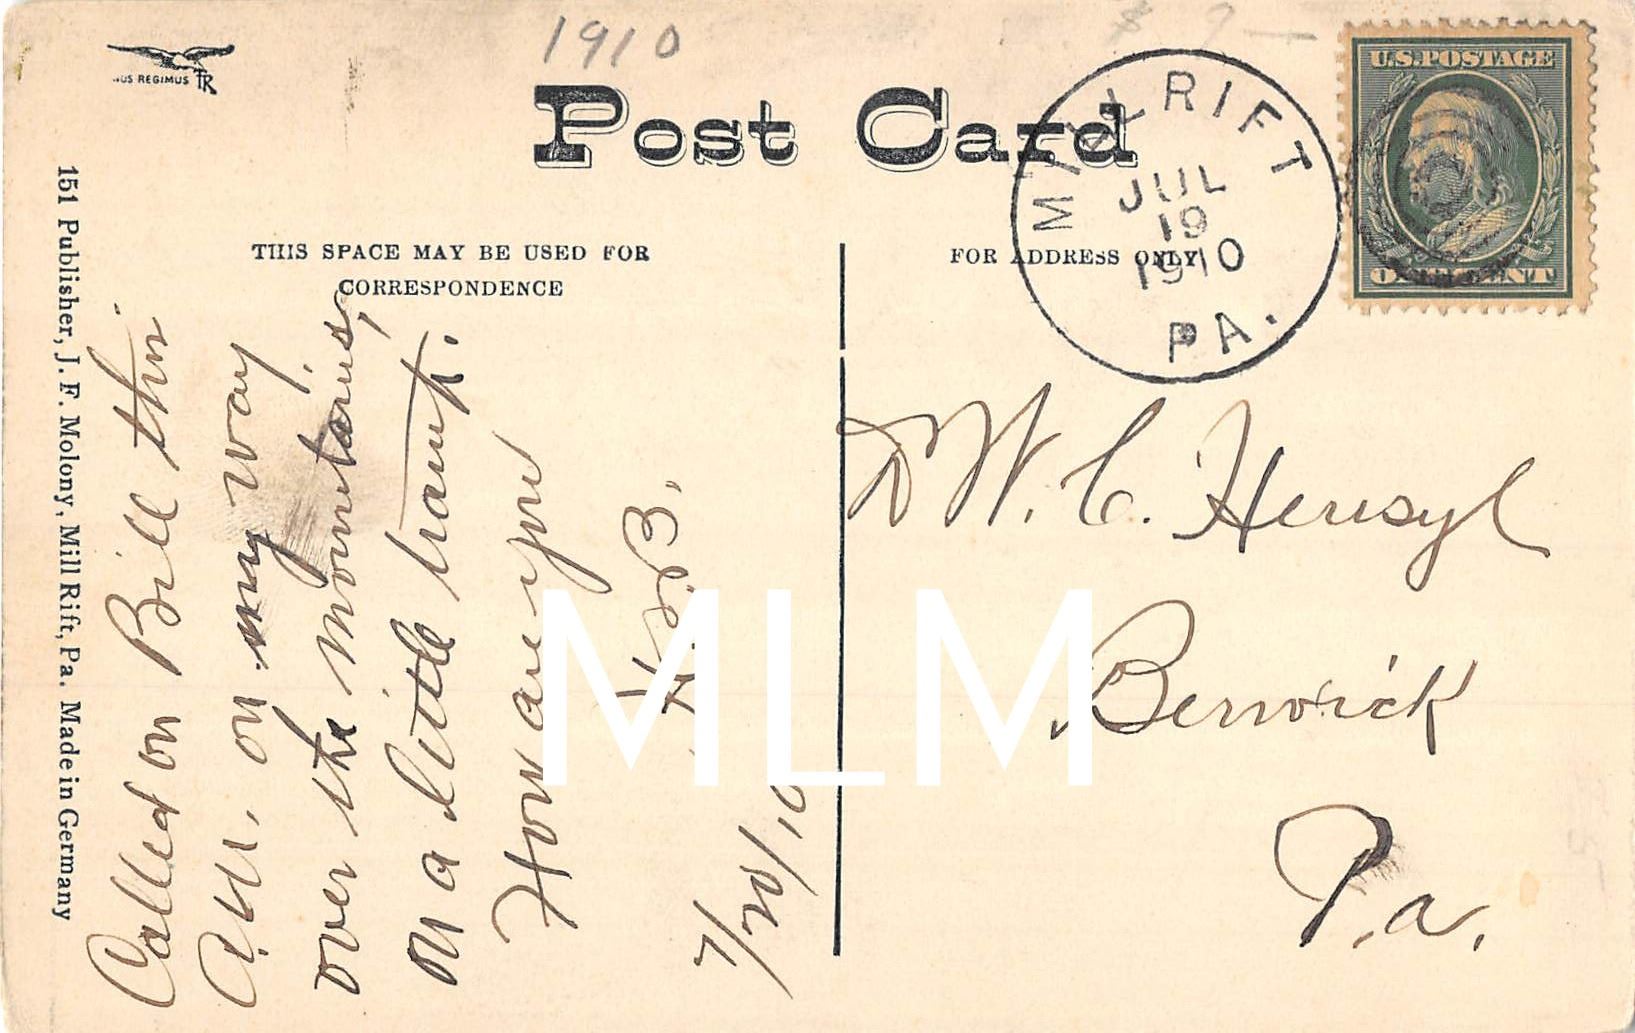 1910
US REGIMUS TR
Post Card
MILL RIFT
JUL
19
1910
PA.
U.S. POSTAGE
ONE CENT
THIS SPACE MAY BE USED FOR
CORRESPONDENCE
FOR ADDRESS ONLY
151 Publisher, J. F. Molony, Mill Rift, Pa. Made in Germany
Called on Bill this
A.M. on my way
over the mountains,
on a little tramp.
How are you
H.B.
7/20/10
W. C. Hensyl
Berwick
Pa.
MLM